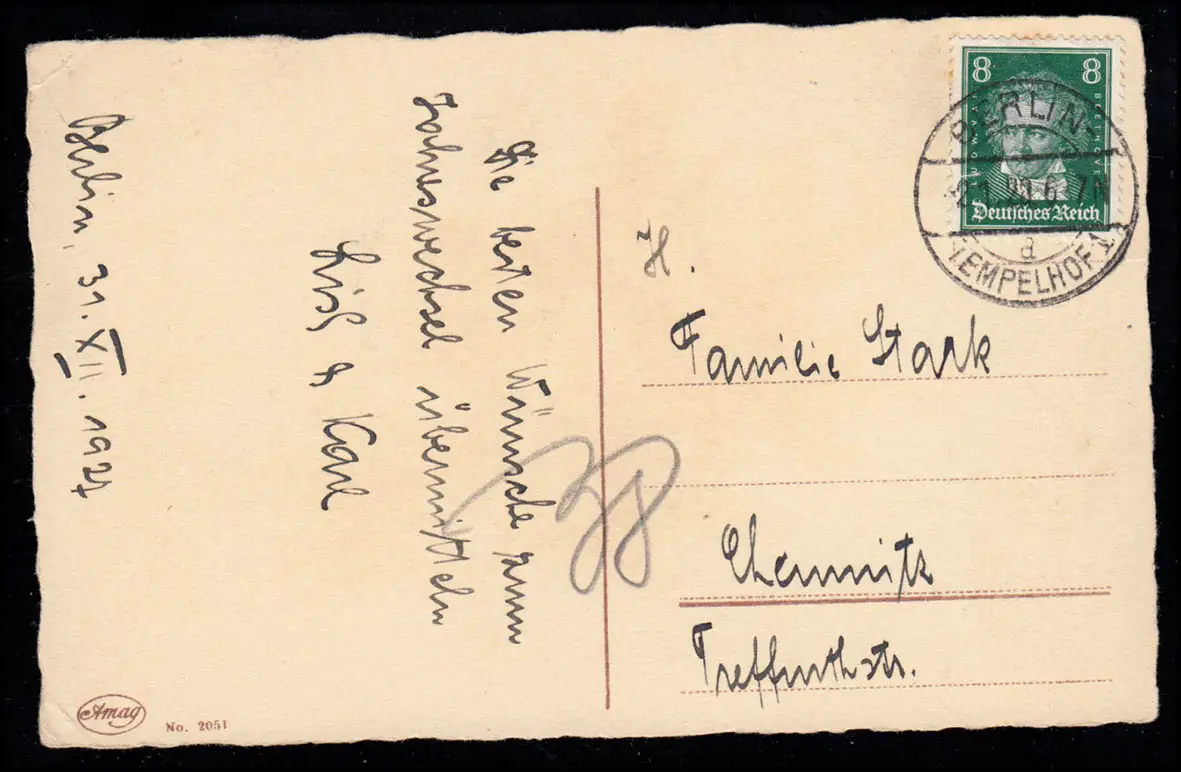 Berlin, 31. XII. 1927
Die besten Wünsche zum
Jahreswechsel übermitteln
& Karl
8 8
Deutsches Reich
BERLIN-
a
TEMPELHOF 1
H.
Familie Stark
Chemnitz
Treffurthstr.
Amag
No. 2051